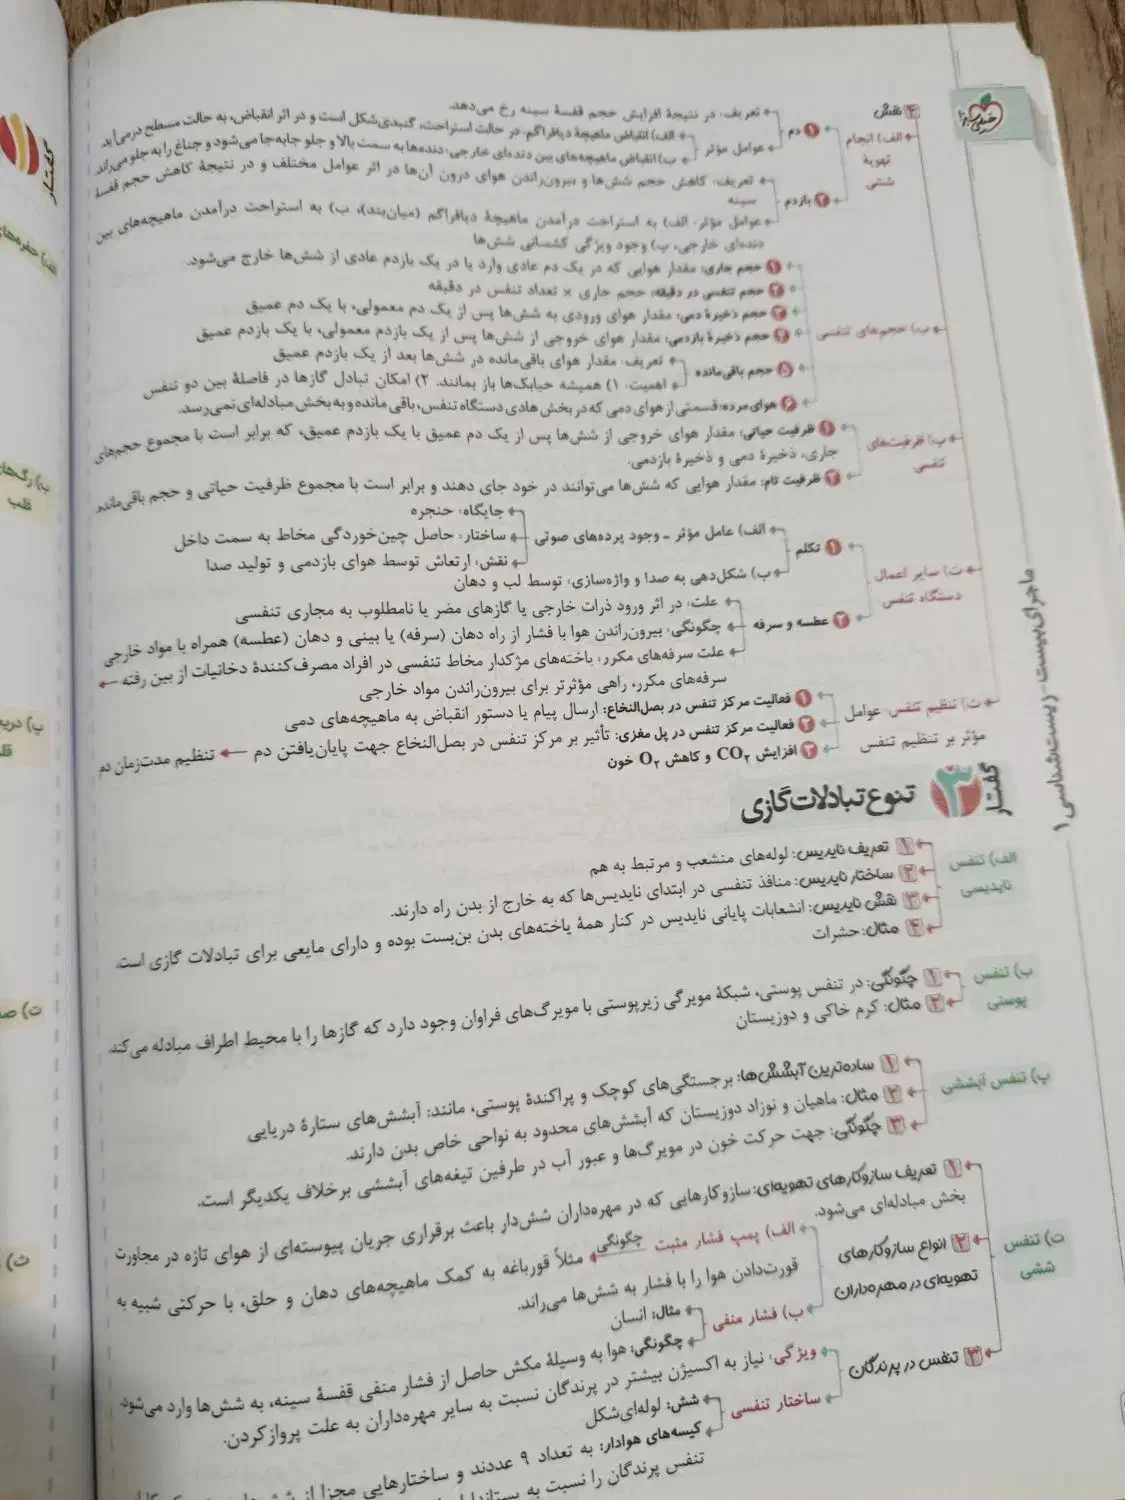 خیلی سبز
۴ نقش
الف) انجام تهویهٔ ششی
۱ دم
تعریف: در نتیجهٔ افزایش حجم قفسهٔ سینه رخ می‌دهد.
عوامل مؤثر
الف) انقباض ماهیچهٔ دیافراگم: در حالت استراحت، گنبدی‌شکل است و در اثر انقباض، به حالت مسطح درمی‌آید
ب) انقباض ماهیچه‌های بین دنده‌ای خارجی: دنده‌ها به سمت بالا و جلو جابه‌جا می‌شود و جناغ را به جلو می‌راند.
۲ بازدم
تعریف: کاهش حجم شش‌ها و بیرون‌راندن هوای درون آن‌ها در اثر عوامل مختلف و در نتیجهٔ کاهش حجم قفسهٔ
سینه
عوامل مؤثر: الف) به استراحت درآمدن ماهیچهٔ دیافراگم (میان‌بند)، ب) به استراحت درآمدن ماهیچه‌های بین
دنده‌ای خارجی، پ) وجود ویژگی کشسانی شش‌ها
ب) حجم‌های تنفسی
۱ حجم جاری: مقدار هوایی که در یک دم عادی وارد یا در یک بازدم عادی از شش‌ها خارج می‌شود.
۲ حجم تنفسی در دقیقه: حجم جاری × تعداد تنفس در دقیقه
۳ حجم ذخیرهٔ دمی: مقدار هوای ورودی به شش‌ها پس از یک دم معمولی، با یک دم عمیق
۴ حجم ذخیرهٔ بازدمی: مقدار هوای خروجی از شش‌ها پس از یک بازدم معمولی، با یک بازدم عمیق
۵ حجم باقی‌مانده
تعریف: مقدار هوای باقی‌مانده در شش‌ها بعد از یک بازدم عمیق
اهمیت: ۱) همیشه حبابک‌ها باز بمانند. ۲) امکان تبادل گازها در فاصلهٔ بین دو تنفس
۶ هوای مرده: قسمتی از هوای دمی که در بخش هادی دستگاه تنفس، باقی مانده و به بخش مبادله‌ای نمی‌رسد.
پ) ظرفیت‌های تنفسی
۱ ظرفیت حیاتی: مقدار هوای خروجی از شش‌ها پس از یک دم عمیق با یک بازدم عمیق، که برابر است با مجموع حجم‌های
جاری، ذخیرهٔ دمی و ذخیرهٔ بازدمی.
۲ ظرفیت تام: مقدار هوایی که شش‌ها می‌توانند در خود جای دهند و برابر است با مجموع ظرفیت حیاتی و حجم باقی‌مانده.
ت) سایر اعمال دستگاه تنفس
۱ تکلم
الف) عامل مؤثر - وجود پرده‌های صوتی
جایگاه: حنجره
ساختار: حاصل چین‌خوردگی مخاط به سمت داخل
نقش: ارتعاش توسط هوای بازدمی و تولید صدا
ب) شکل‌دهی به صدا و واژه‌سازی: توسط لب و دهان
۲ عطسه و سرفه
علت: در اثر ورود ذرات خارجی یا گازهای مضر یا نامطلوب به مجاری تنفسی
چگونگی: بیرون‌راندن هوا با فشار از راه دهان (سرفه) یا بینی و دهان (عطسه) همراه با مواد خارجی
علت سرفه‌های مکرر: یاخته‌های مژکدار مخاط تنفسی در افراد مصرف‌کنندهٔ دخانیات از بین رفته ←
سرفه‌های مکرر، راهی مؤثرتر برای بیرون‌راندن مواد خارجی
ث) تنظیم تنفس: عوامل مؤثر بر تنظیم تنفس
۱ فعالیت مرکز تنفس در بصل‌النخاع: ارسال پیام یا دستور انقباض به ماهیچه‌های دمی
۲ فعالیت مرکز تنفس در پل مغزی: تأثیر بر مرکز تنفس در بصل‌النخاع جهت پایان‌یافتن دم ← تنظیم مدت‌زمان دم
۳ افزایش CO₂ و کاهش O₂ خون
گفتار ۳ تنوع تبادلات گازی
الف) تنفس نایدیسی
۱ تعریف نایدیس: لوله‌های منشعب و مرتبط به هم
۲ ساختار نایدیس: منافذ تنفسی در ابتدای نایدیس‌ها که به خارج از بدن راه دارند.
۳ نقش نایدیس: انشعابات پایانی نایدیس در کنار همهٔ یاخته‌های بدن بن‌بست بوده و دارای مایعی برای تبادلات گازی است.
۴ مثال: حشرات
ب) تنفس پوستی
۱ چگونگی: در تنفس پوستی، شبکهٔ مویرگی زیرپوستی با مویرگ‌های فراوان وجود دارد که گازها را با محیط اطراف مبادله می‌کند.
۲ مثال: کرم خاکی و دوزیستان
پ) تنفس آبششی
۱ ساده‌ترین آبشش‌ها: برجستگی‌های کوچک و پراکندهٔ پوستی، مانند: آبشش‌های ستارهٔ دریایی
۲ مثال: ماهیان و نوزاد دوزیستان که آبشش‌های محدود به نواحی خاص بدن دارند.
۳ چگونگی: جهت حرکت خون در مویرگ‌ها و عبور آب در طرفین تیغه‌های آبششی برخلاف یکدیگر است.
ت) تنفس ششی
۱ تعریف سازوکارهای تهویه‌ای: سازوکارهایی که در مهره‌داران شش‌دار باعث برقراری جریان پیوسته‌ای از هوای تازه در مجاورت
بخش مبادله‌ای می‌شود.
۲ انواع سازوکارهای تهویه‌ای در مهره‌داران
الف) پمپ فشار مثبت چگونگی مثلاً قورباغه به کمک ماهیچه‌های دهان و حلق، با حرکتی شبیه به
قورت‌دادن هوا را با فشار به شش‌ها می‌راند.
ب) فشار منفی
مثال: انسان
چگونگی: هوا به وسیلهٔ مکش حاصل از فشار منفی قفسهٔ سینه، به شش‌ها وارد می‌شود.
۳ تنفس در پرندگان
ویژگی: نیاز به اکسیژن بیشتر در پرندگان نسبت به سایر مهره‌داران به علت پروازکردن.
ساختار تنفسی
شش: لوله‌ای‌شکل
کیسه‌های هوادار: به تعداد ۹ عددند و ساختارهایی مجزا از
تنفس پرندگان را نسبت به
ماجرای بیست - زیست‌شناسی ۱
گفتار
الف) حفره‌های
ب) رگ‌های
قلب
پ) دریچه
ت)
ث)